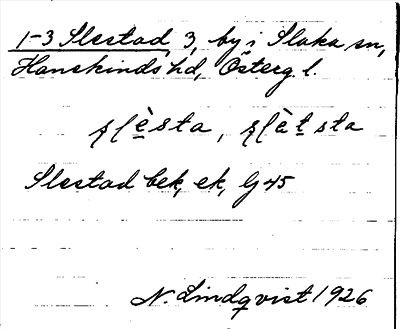 1-3 Slestad, 3, by i Slaka sn,
Hanekinds hd, Österg. l.
slèsta, slèt sta
Slestad bek, ek, Gj 45
N. Lindqvist 1926